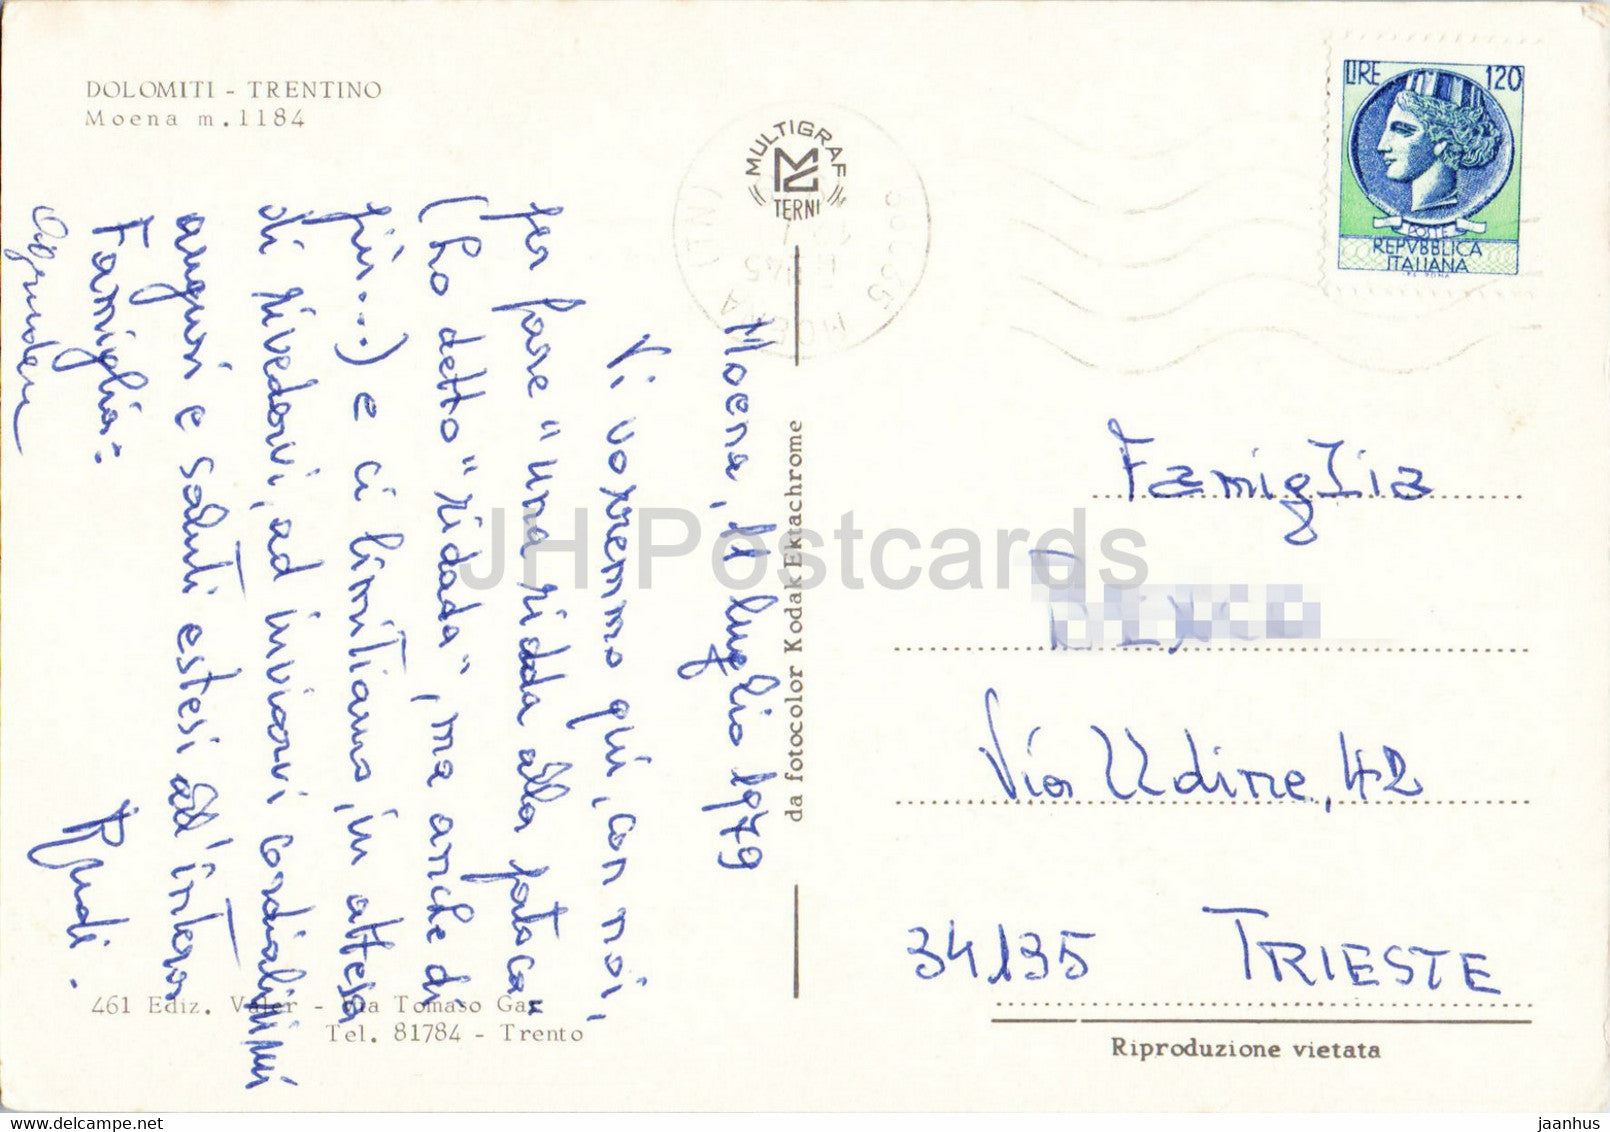 DOLOMITI - TRENTINO
Moena m.1184
MULTIGRAF
TERNI
LIRE 120
POSTE
REPVBBLICA
ITALIANA
MOENA (TN)
Moena, luglio 1979
Vi vorremmo qui, con noi,
per fare "una ridda alla patoca"
(ho detto "ridada", ma anche di
più...) e ci limitiamo, in attesa
di rivedervi, ad inviarvi cordialissimi
auguri e saluti estesi ad'intera
Famiglia:
Rudi.
da fotocolor Kodak Ektachrome
Famiglia
Via Udine, 42
34135 TRIESTE
461 Ediz. Valer - Via Tomaso Gar
Tel. 81784 - Trento
Riproduzione vietata
JH Postcards
www.delcampe.net
jaanhus